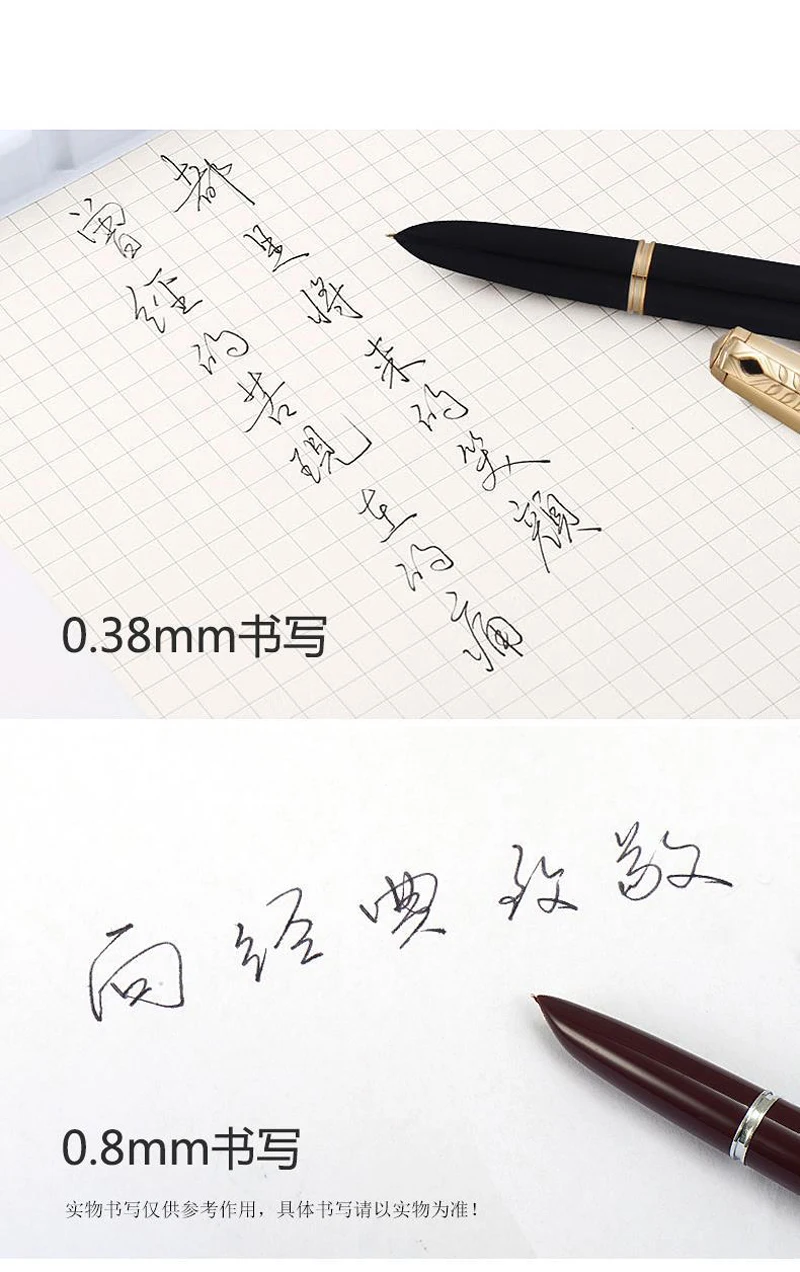 曾经的苦現在的痛
都是将来的笑颜
0.38mm书写
向经典致敬
0.8mm书写
实物书写仅供参考作用，具体书写请以实物为准！